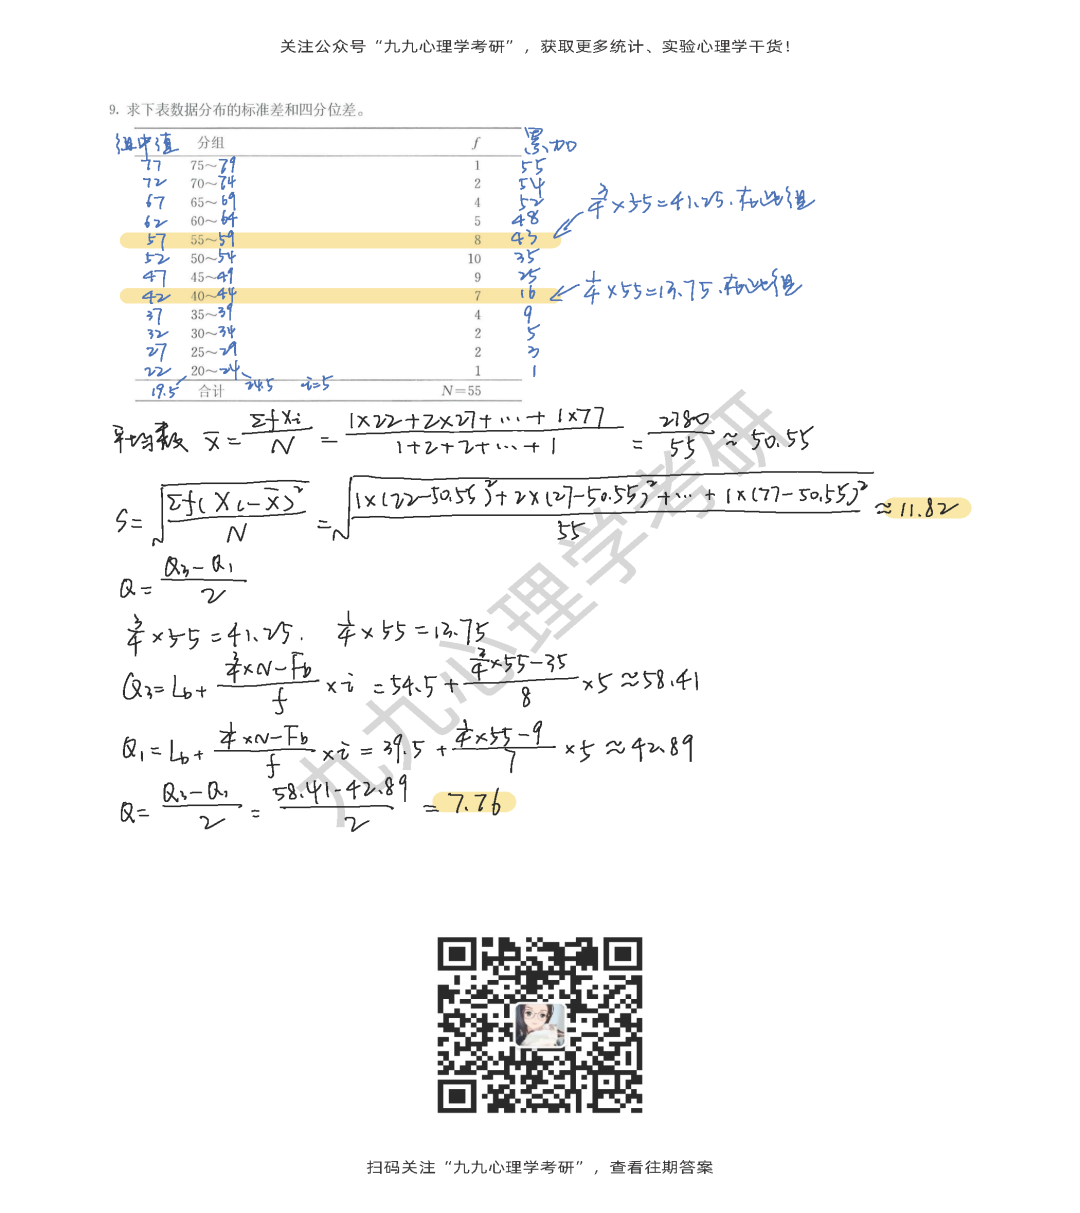 关注公众号“九九心理学考研”，获取更多统计、实验心理学干货！
9. 求下表数据分布的标准差和四分位差。
组中值 分组 f 累加
77 75～79 1 55
72 70～74 2 54
67 65～69 4 52
3/4×55=41.25.在此组
62 60～64 5 48
57 55～59 8 43
52 50～54 10 35
47 45～49 9 25
1/4×55=13.75.在此组
42 40～44 7 16
37 35～39 4 9
32 30～34 2 5
27 25～29 2 3
22 20～24 1 1
19.5 24.5 i=5
合计 N=55
平均数 X̄=ΣfXi/N=(1×22+2×27+…+1×77)/(1+2+2+…+1)=2780/55≈50.55
S=√(Σf(Xi-X̄)²/N)=√((1×(22-50.55)²+2×(27-50.55)²+…+1×(77-50.55)²)/55)≈11.82
Q=(Q3-Q1)/2
3/4×55=41.25. 1/4×55=13.75
Q3=Lb+(3/4×N-Fb)/f×i=54.5+(3/4×55-35)/8×5≈58.41
Q1=Lb+(1/4×N-Fb)/f×i=39.5+(1/4×55-9)/7×5≈42.89
Q=(Q3-Q1)/2=(58.41-42.89)/2=7.76
九九心理学考研
扫码关注“九九心理学考研”，查看往期答案